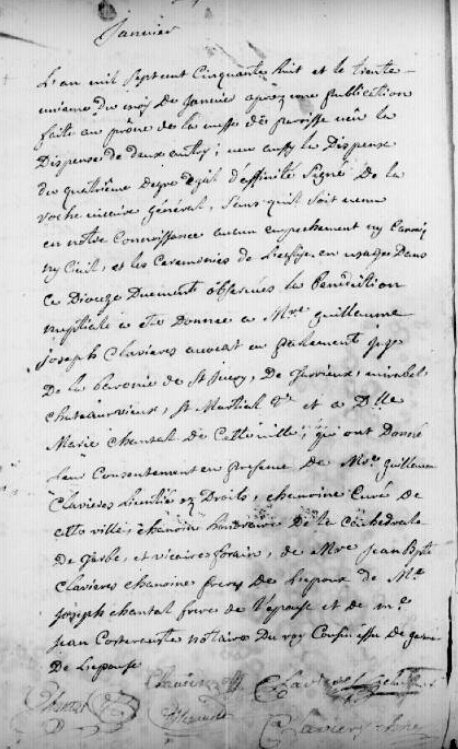 Janvier
L'an mil sept cent Cinquante huit et le trente
unieme du mois De Janvier après une publication
faite au prône de la messe de paroisse veu la
Dispense de deux autres; veu aussy la Dispense
du quatrième degré d'affinité Signé De la
roche vicaire général, Sans quil soit venu
en notre Connoissance aucun empechement ny Canoniq
ny Civil, et les Ceremonies de L'eglise en usage Dans
Ce Dioceze Duement observées la benediction
nuptiale a ete Donnée a Mre guillaume
joseph Clavieres avocat en parlement juge
De la baronie de St Juery, De
Chateauvieux, St Martial &c et a Dlle
Marie Chantal de Cette ville, qui ont Donné
leur Consentement en presence De Mre guillaume
Clavieres Licentié ez Droits, chanoine Curé De
cette ville, chanoine honoraire De le Cathedrale
de Tarbe, et vicaire forain, de Mre jean Bpte
Clavieres chanoine frere De L'epoux de Mre
joseph chantal frere de L'epouse et de me
jean notaire Du roy Cousin de
De L'epouse
Clavieres
Chantal
Clavieres